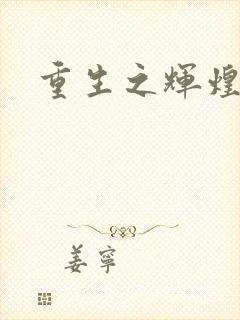 重生之輝煌
姜寧